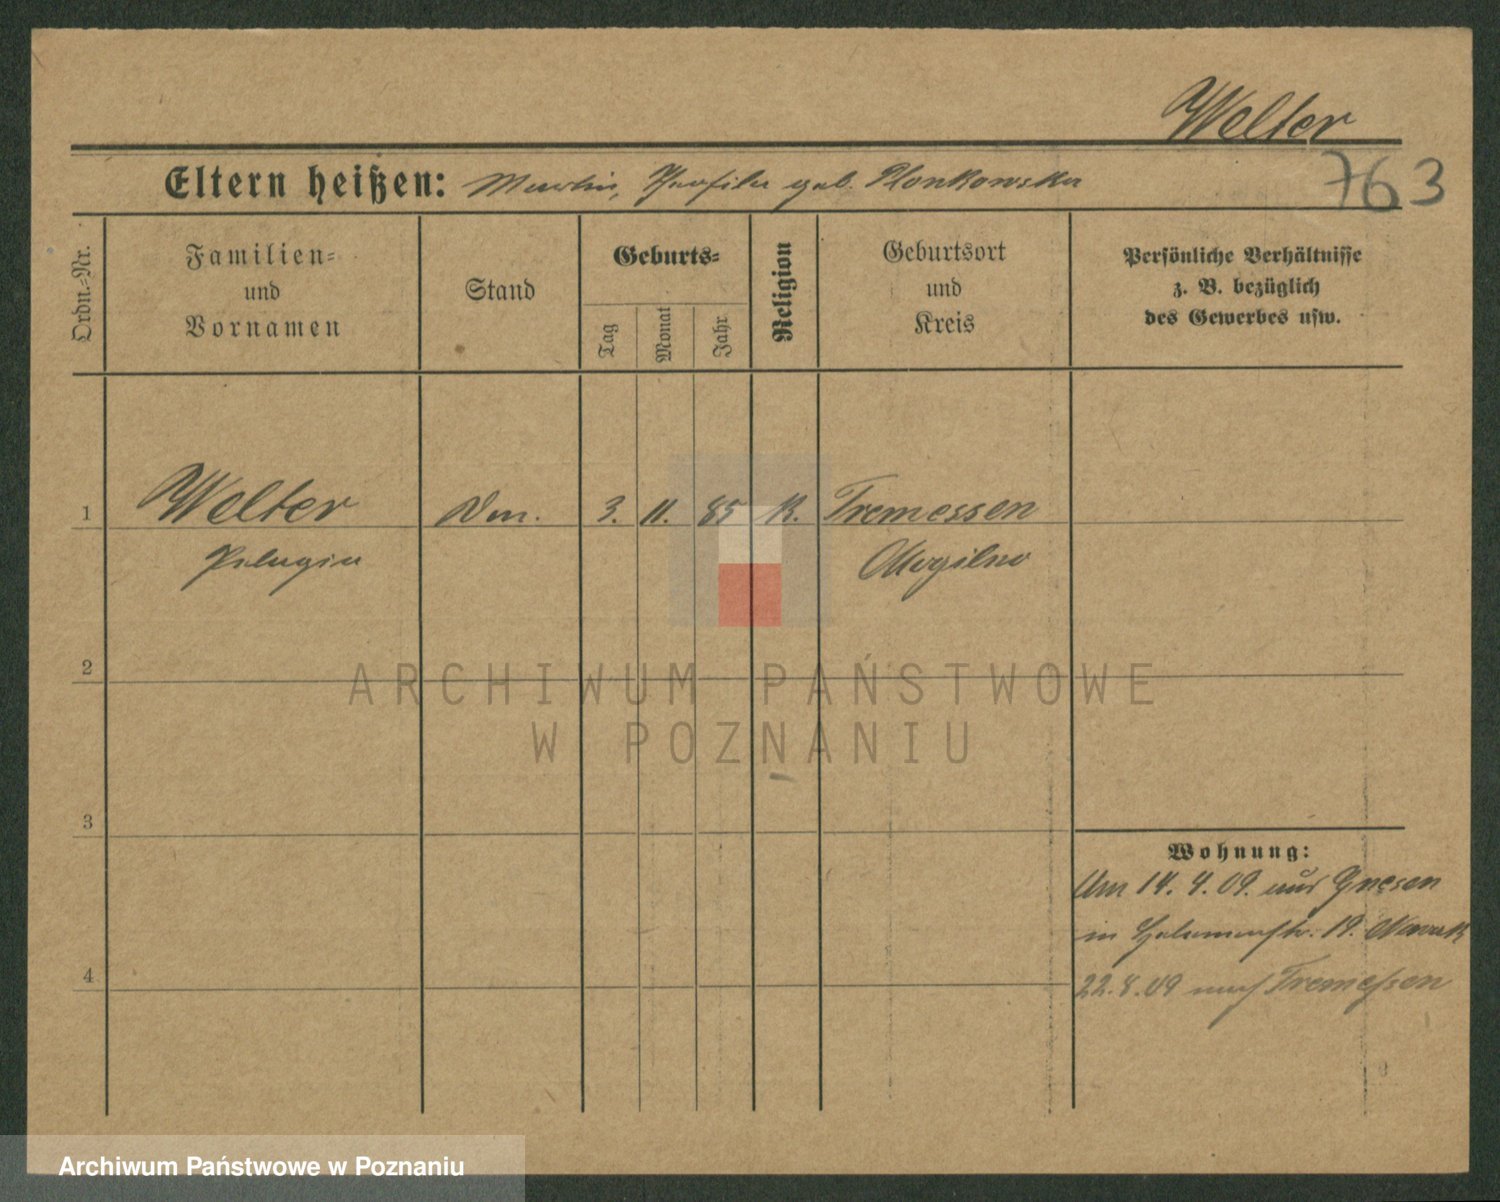 Welter
763
Eltern heißen: Martin, Theofila geb. Plonkowska
Ordn.-Nr.
Familien-
und
Vornamen
Stand
Geburts-
Tag
Monat
Jahr
Religion
Geburtsort
und
Kreis
Persönliche Verhältnisse
z. B. bezüglich
des Gewerbes usw.
1 Welter 3. 11. 85 K. Tremessen
Pelagia Mogilno
2
3
Wohnung:
Am 14. 4. 09. aus Gnesen
in 19. Nowak
4
22.8.09 nach Tremessen
ARCHIWUM PAŃSTWOWE
W POZNANIU
Archiwum Państwowe w Poznaniu